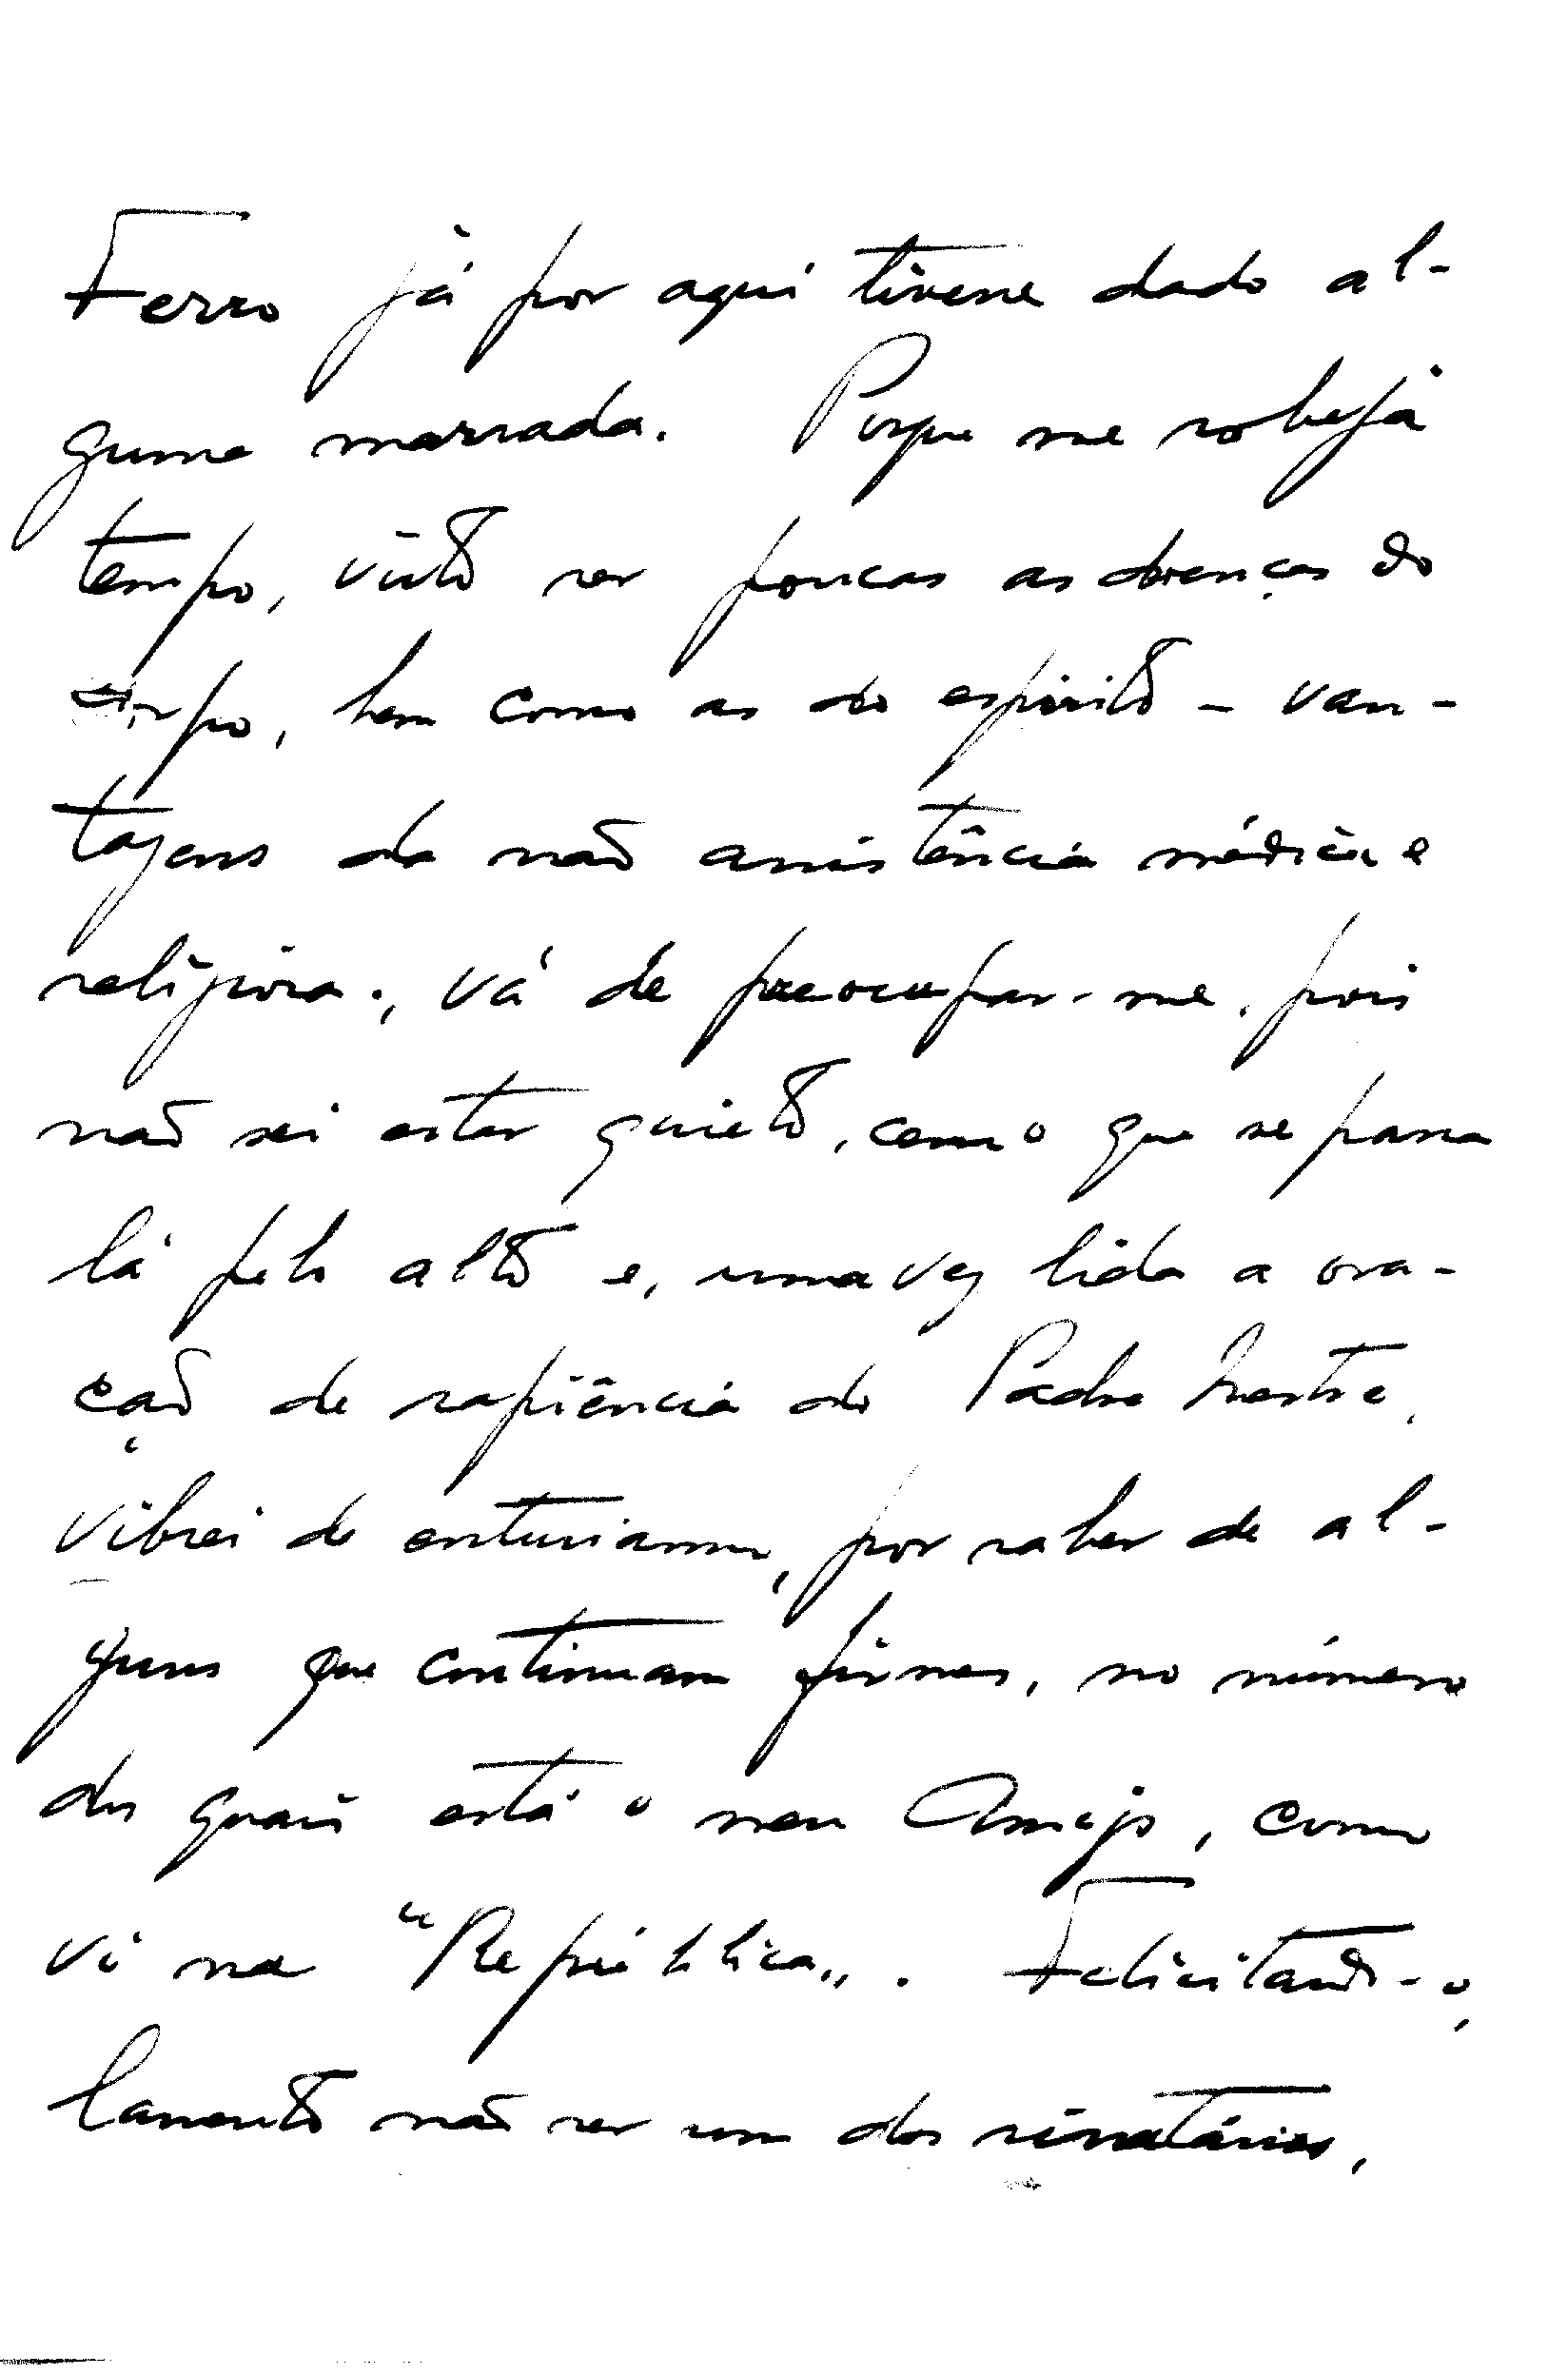 Ferro já por aqui tivesse dado al-
guma marrada. Porque me sobeja
tempo, visto ser poucas as doenças do
corpo, bem como as do espirito - van-
tagens da não assistência médica e
religiosa -, vá de preocupar-me, pois
não sei estar quieto, com o que se passa
lá pelo alto e, uma vez lida a ora-
ção de sapiência do Padre Mestre,
vibrei de entusiasmo, por saber de al-
guns que continuam firmes, no número
dos quais está o meu Amigo, como
vi na "República". Felicitando-o,
lamento não ser um dos sinatários,